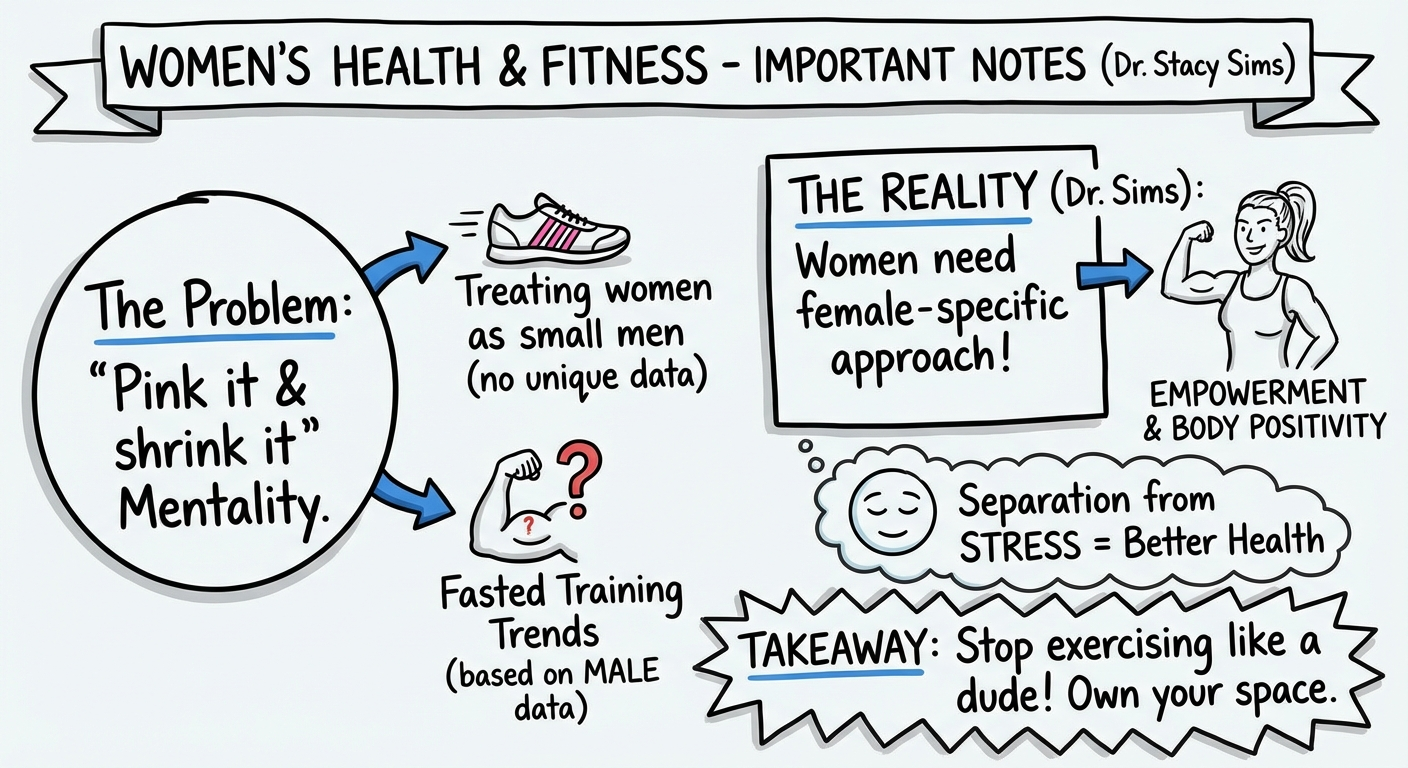 WOMEN'S HEALTH & FITNESS - IMPORTANT NOTES (Dr. Stacy Sims)
The Problem:
"Pink it &
shrink it"
Mentality.
Treating women
as small men
(no unique data)
?
?
Fasted Training
Trends
(based on MALE
data)
THE REALITY (Dr. Sims):
Women need
female-specific
approach!
EMPOWERMENT
& BODY POSITIVITY
Separation from
STRESS = Better Health
TAKEAWAY: Stop exercising like a
dude! Own your space.